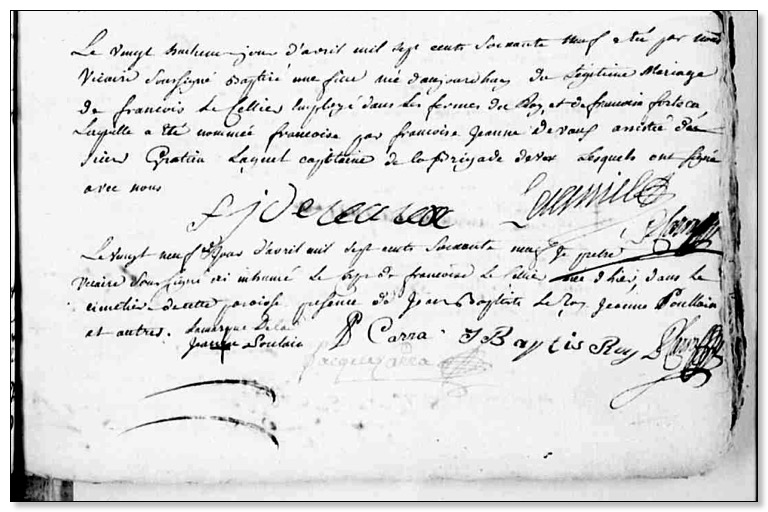 Le vingt huitieme jour d'avril mil sept cents soixante neuf a été par nous
Vicaire soussigné baptizé une fille née d'aujourdhuy du Legitime Mariage
de francois Le Cellier Employé dans les fermes du Roy, et de francoise
Laquelle a été nommée francoise par francoise Jeanne devaux assistée du
sieur Gratien Laquet capitaine de la Brigade de Lesquels ont signé
avec nous
f j de
Le vingt neuf jour d'avril mil sept cents soixante neuf Je pretre
vicaire soussigné ai inhumé le corps de francoise Le Cellier née d'hier, dans le
cimetiere de cette paroisse presence de Jean Baptiste Le Roy, Jeanne Poullain
et autres. Lamarque Dela
Jeanne Poulain
Carra J Baptis Roy
Jacque Carra